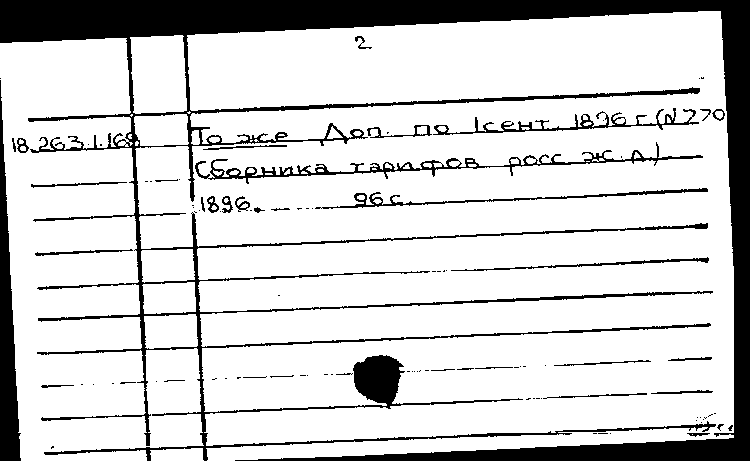 2
18.263.1.169 То же Доп. по 1 сент. 1896 г. (N 770
Сборника тарифов росс. ж. д.)
1896. 96 с.